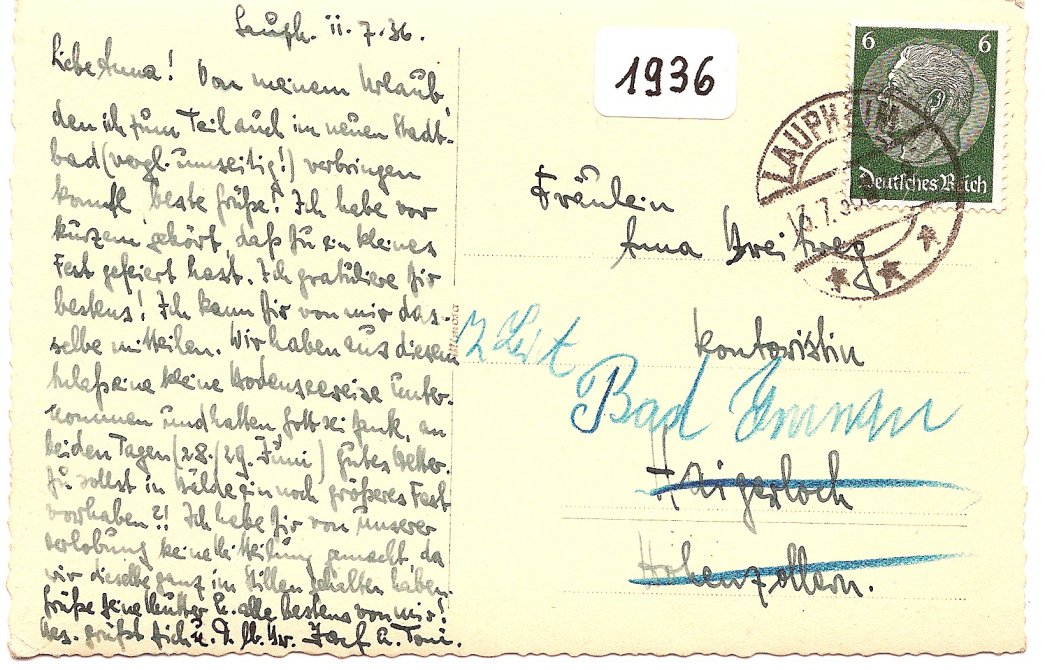 Lauph. 11.7.36.
Liebe Anna! Von meinem Urlaub,
den ich zum Teil auch im neuen Stadt-
bad (vergl. umseitig!) verbringen
konnte, beste Grüße! Ich habe vor
kurzem gehört, daß Du ein kleines
Fest gefeiert hast. Ich gratuliere Dir
bestens! Ich kann Dir von mir das-
selbe mitteilen. Wir haben aus diesem
Anlaß eine kleine Bodenseereise unter-
nommen und hatten Gott sei Dank, an
beiden Tagen (28./29. Juni) gutes Wetter.
Du sollst in Bälde ein noch größeres Fest
vorhaben?! Ich habe Dir von unserer
Verlobung keine Mitteilung gemacht, da
wir dieselbe ganz im Stillen gehalten haben.
Grüße Deine Mutter u. alle bestens von mir!
Bes. grüßt Dich u. D. lb. Br. Josef u. Toni.
1936
6 6
Deutsches Reich
LAUPHEIM
13.7.36
Fräulein
Anna Breitweg
Kontoristin
z Zeit
Bad Imnau
Haigerloch
Hohenzollern.